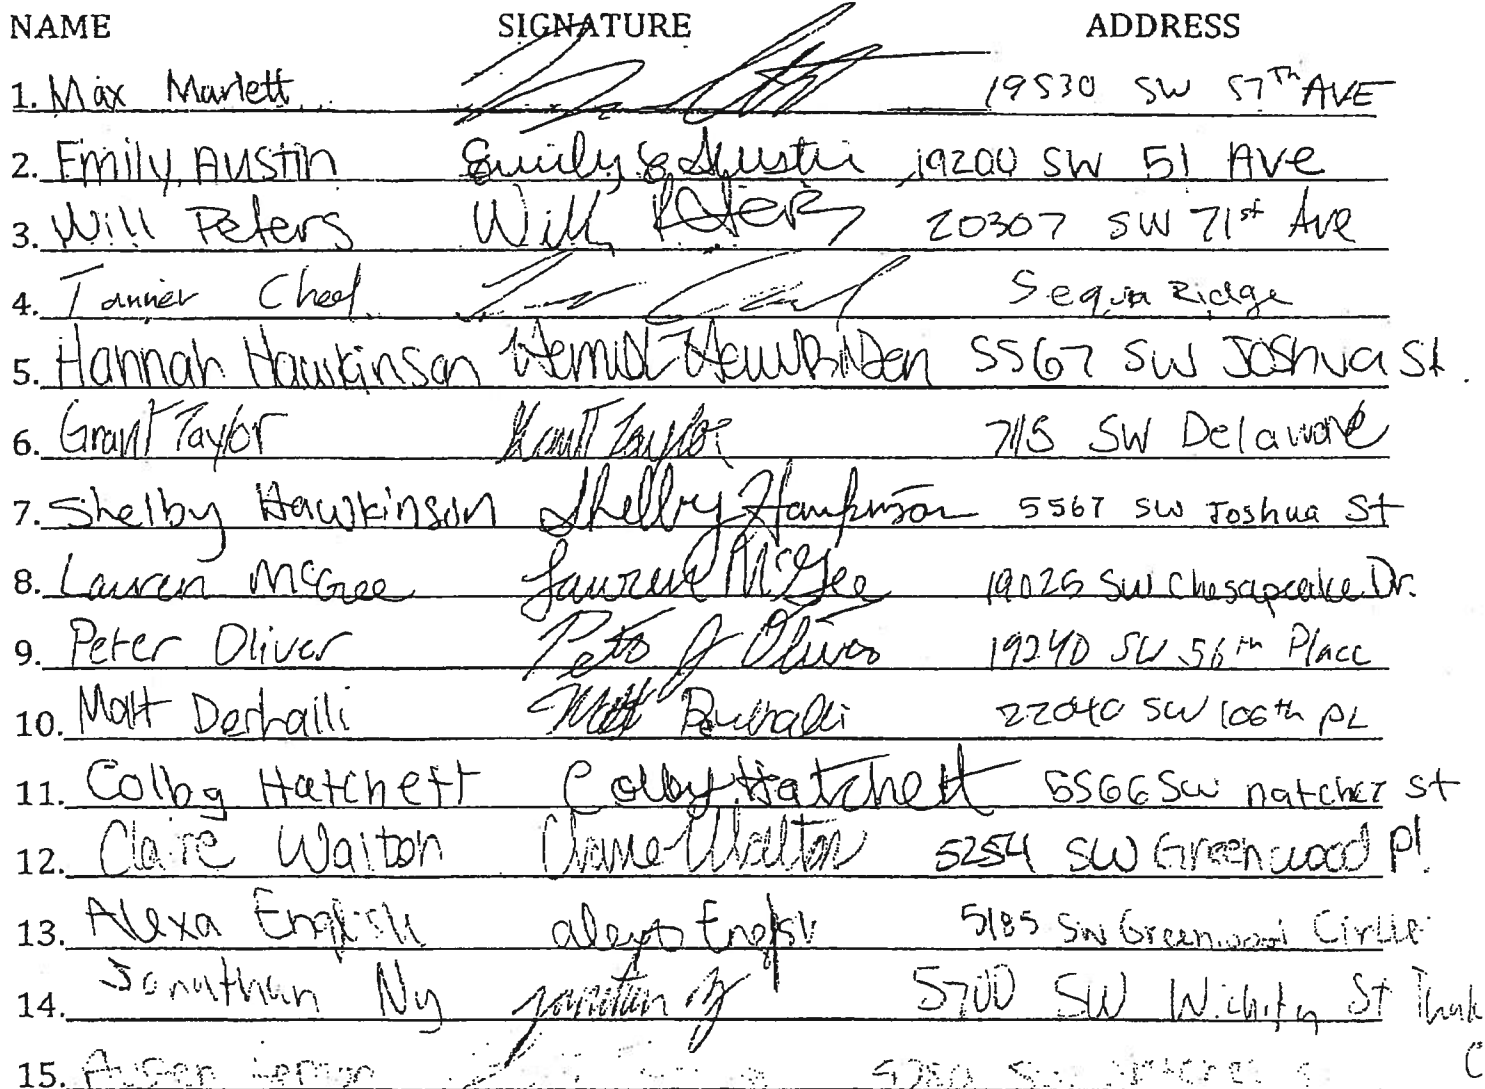 NAME SIGNATURE ADDRESS
1. Max Marlett 19530 SW 57th AVE
2. Emily Austin Emily E Austin 19200 SW 51 Ave
3. Will Peters Will Peters 20307 SW 71st Ave
4. Tanner Ridge
5. Hannah Hawkinson 5567 SW Joshua St.
6. Grant Taylor Grant Taylor 7115 SW Delaware
7. Shelby Hawkinson Shelby Hawkinson 5567 SW Joshua St
8. Lauren McGee Lauren McGee 19025 SW Chesapeake Dr.
9. Peter Oliver Peter J Oliver 19240 SW 56th Place
10. Matt Derhalli Matt Derhalli 22040 SW 106th PL
11. Colby Hatchett Colby Hatchett 5566 SW natchez St
12. Claire Walton Claire Walton 5254 SW Greenwood Pl.
13. Alexa English alexa English 5185 SW Greenwood Circle
14. Jonathan Ny 5700 SW Wichita St
15.